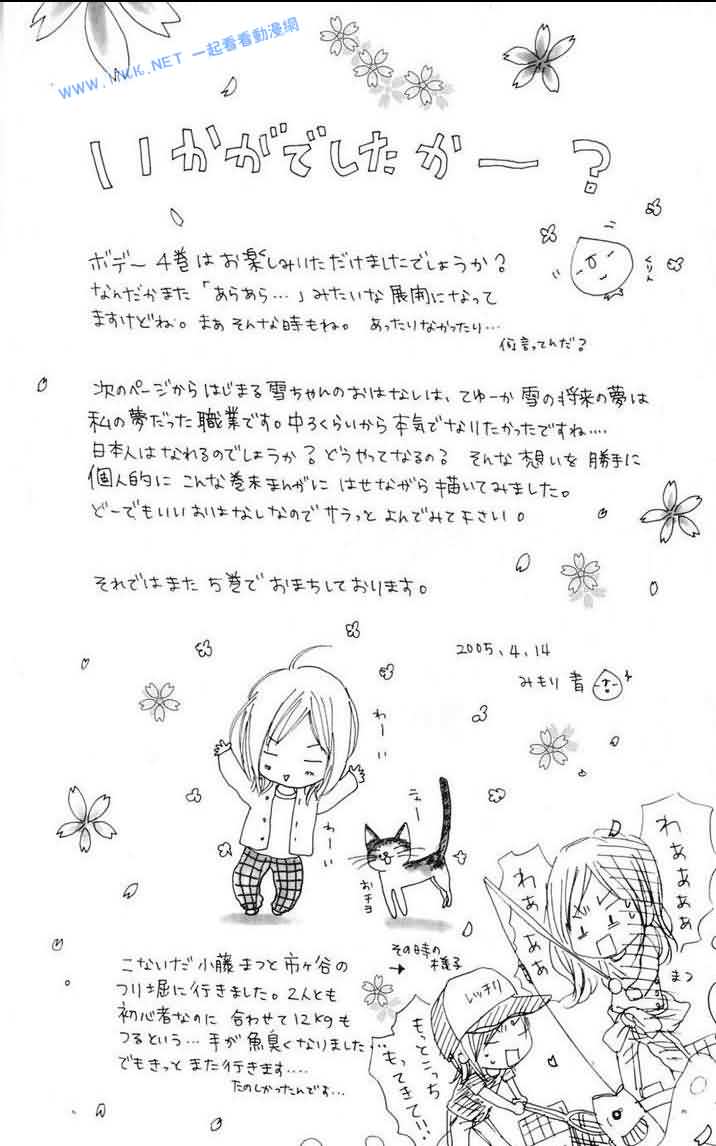 WWW.17KK.NET 一起看看動漫網
いかがでしたかー?
ボデー4巻はお楽しみいただけましたでしょうか?
なんだかまた「あらあら…」みたいな展開になって
ますけどね。まぁそんな時もね。あったりなかったり…
何言ってんだ?
くりん
次のページからはじまる雪ちゃんのおはなしは、てゆーか雪の将来の夢は
私の夢だった職業です。中3くらいから本気でなりたかったですね….
日本人はなれるのでしょうか?どうやってなるの? そんな想いを勝手に
個人的に こんな巻末まんがに はせながら描いてみました。
どーでもいいおはなしなのでサラっと よんでみて下さい。
それではまた5巻で おまちしております。
2005.4.14
みもり青
わーい
わーい
ニャー
おチヨ
こないだ小藤まつと市ヶ谷の
つり堀に行きました。2人とも
初心者なのに 合わせて12kgも
つるという…手が魚臭くなりました…
でもきっと また行きます….
たのしかったんです…
その時の
様子
→
わぁぁぁぁ
わぁぁぁぁ
まつ
イッキリ
もっとこっち
もってきて!!